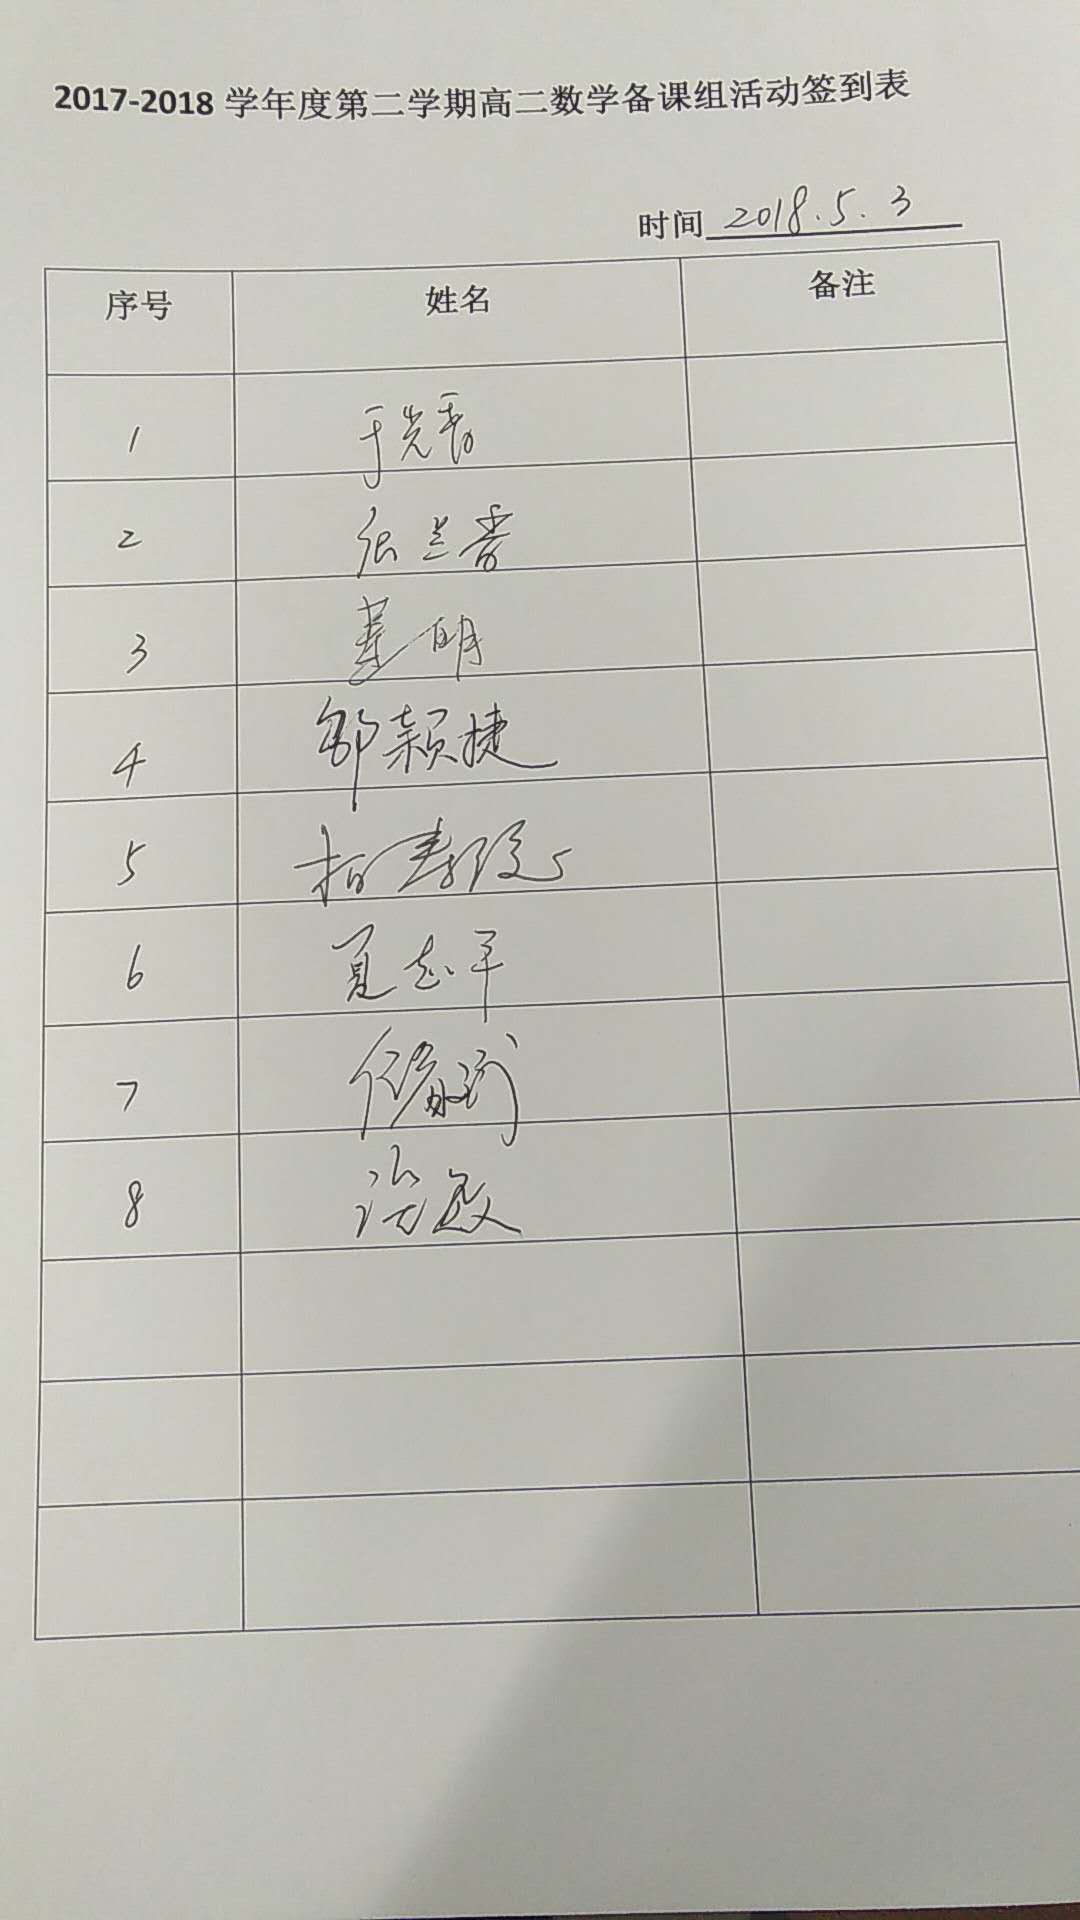 2017-2018 学年度第二学期高二数学备课组活动签到表
时间 2018.5.3
序号 姓名 备注
1
2 张兰香
3 姜明
4 邹颖捷
5
6 夏志平
7
8